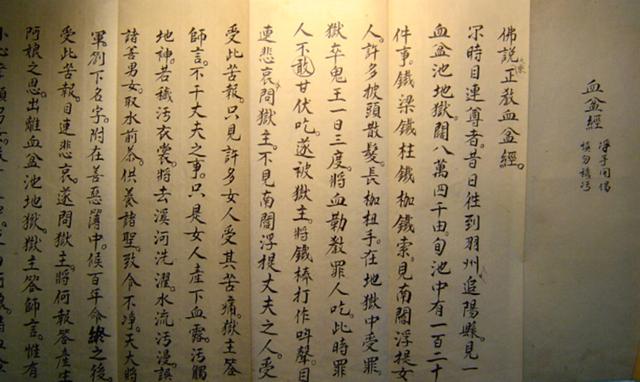 血盆經
淨手開
佛說大藏正教血盆經。
尔時目連尊者。昔日徃到羽州追陽縣。見一
血盆池地獄。闊八萬四千由旬池中有一百二十
件事。鐵梁鐵柱鐵枷鐵索。見南閻浮提女
人。許多披頭散髮。長枷杻手。在地獄中受罪。
獄卒鬼王一日三度。將血勒教罪人吃。此時罪
人不敢甘伏吃。遂被獄主。將鐵棒打作叫聲。目
連悲哀。問獄主。不見南閻浮提丈夫之人。受
受此苦報。只見許多女人受其苦痛。獄主答
師言。不干丈夫之事。只是女人產下血露。污觸
地神。若穢污衣裳。將去溪河洗濯。水流污漫。誤
諸善男女。取水煎茶。供養諸聖。致令不淨。天大將
軍劄下名字。附在善惡簿中。候百年命終之後。
受此苦報。目連悲哀。遂問獄主。將何報答產生
阿娘之恩。出離血盆池地獄。獄主答師言。惟有